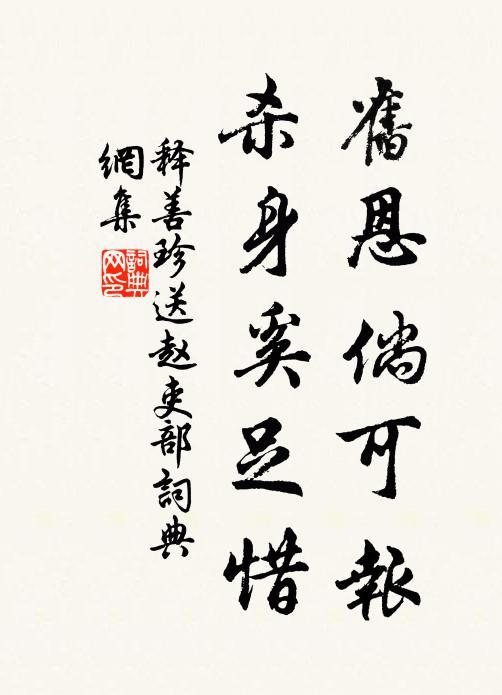 舊恩倘可報
杀身奚足惜
释善珍送赵吏部詞典
網集
詞典
网印